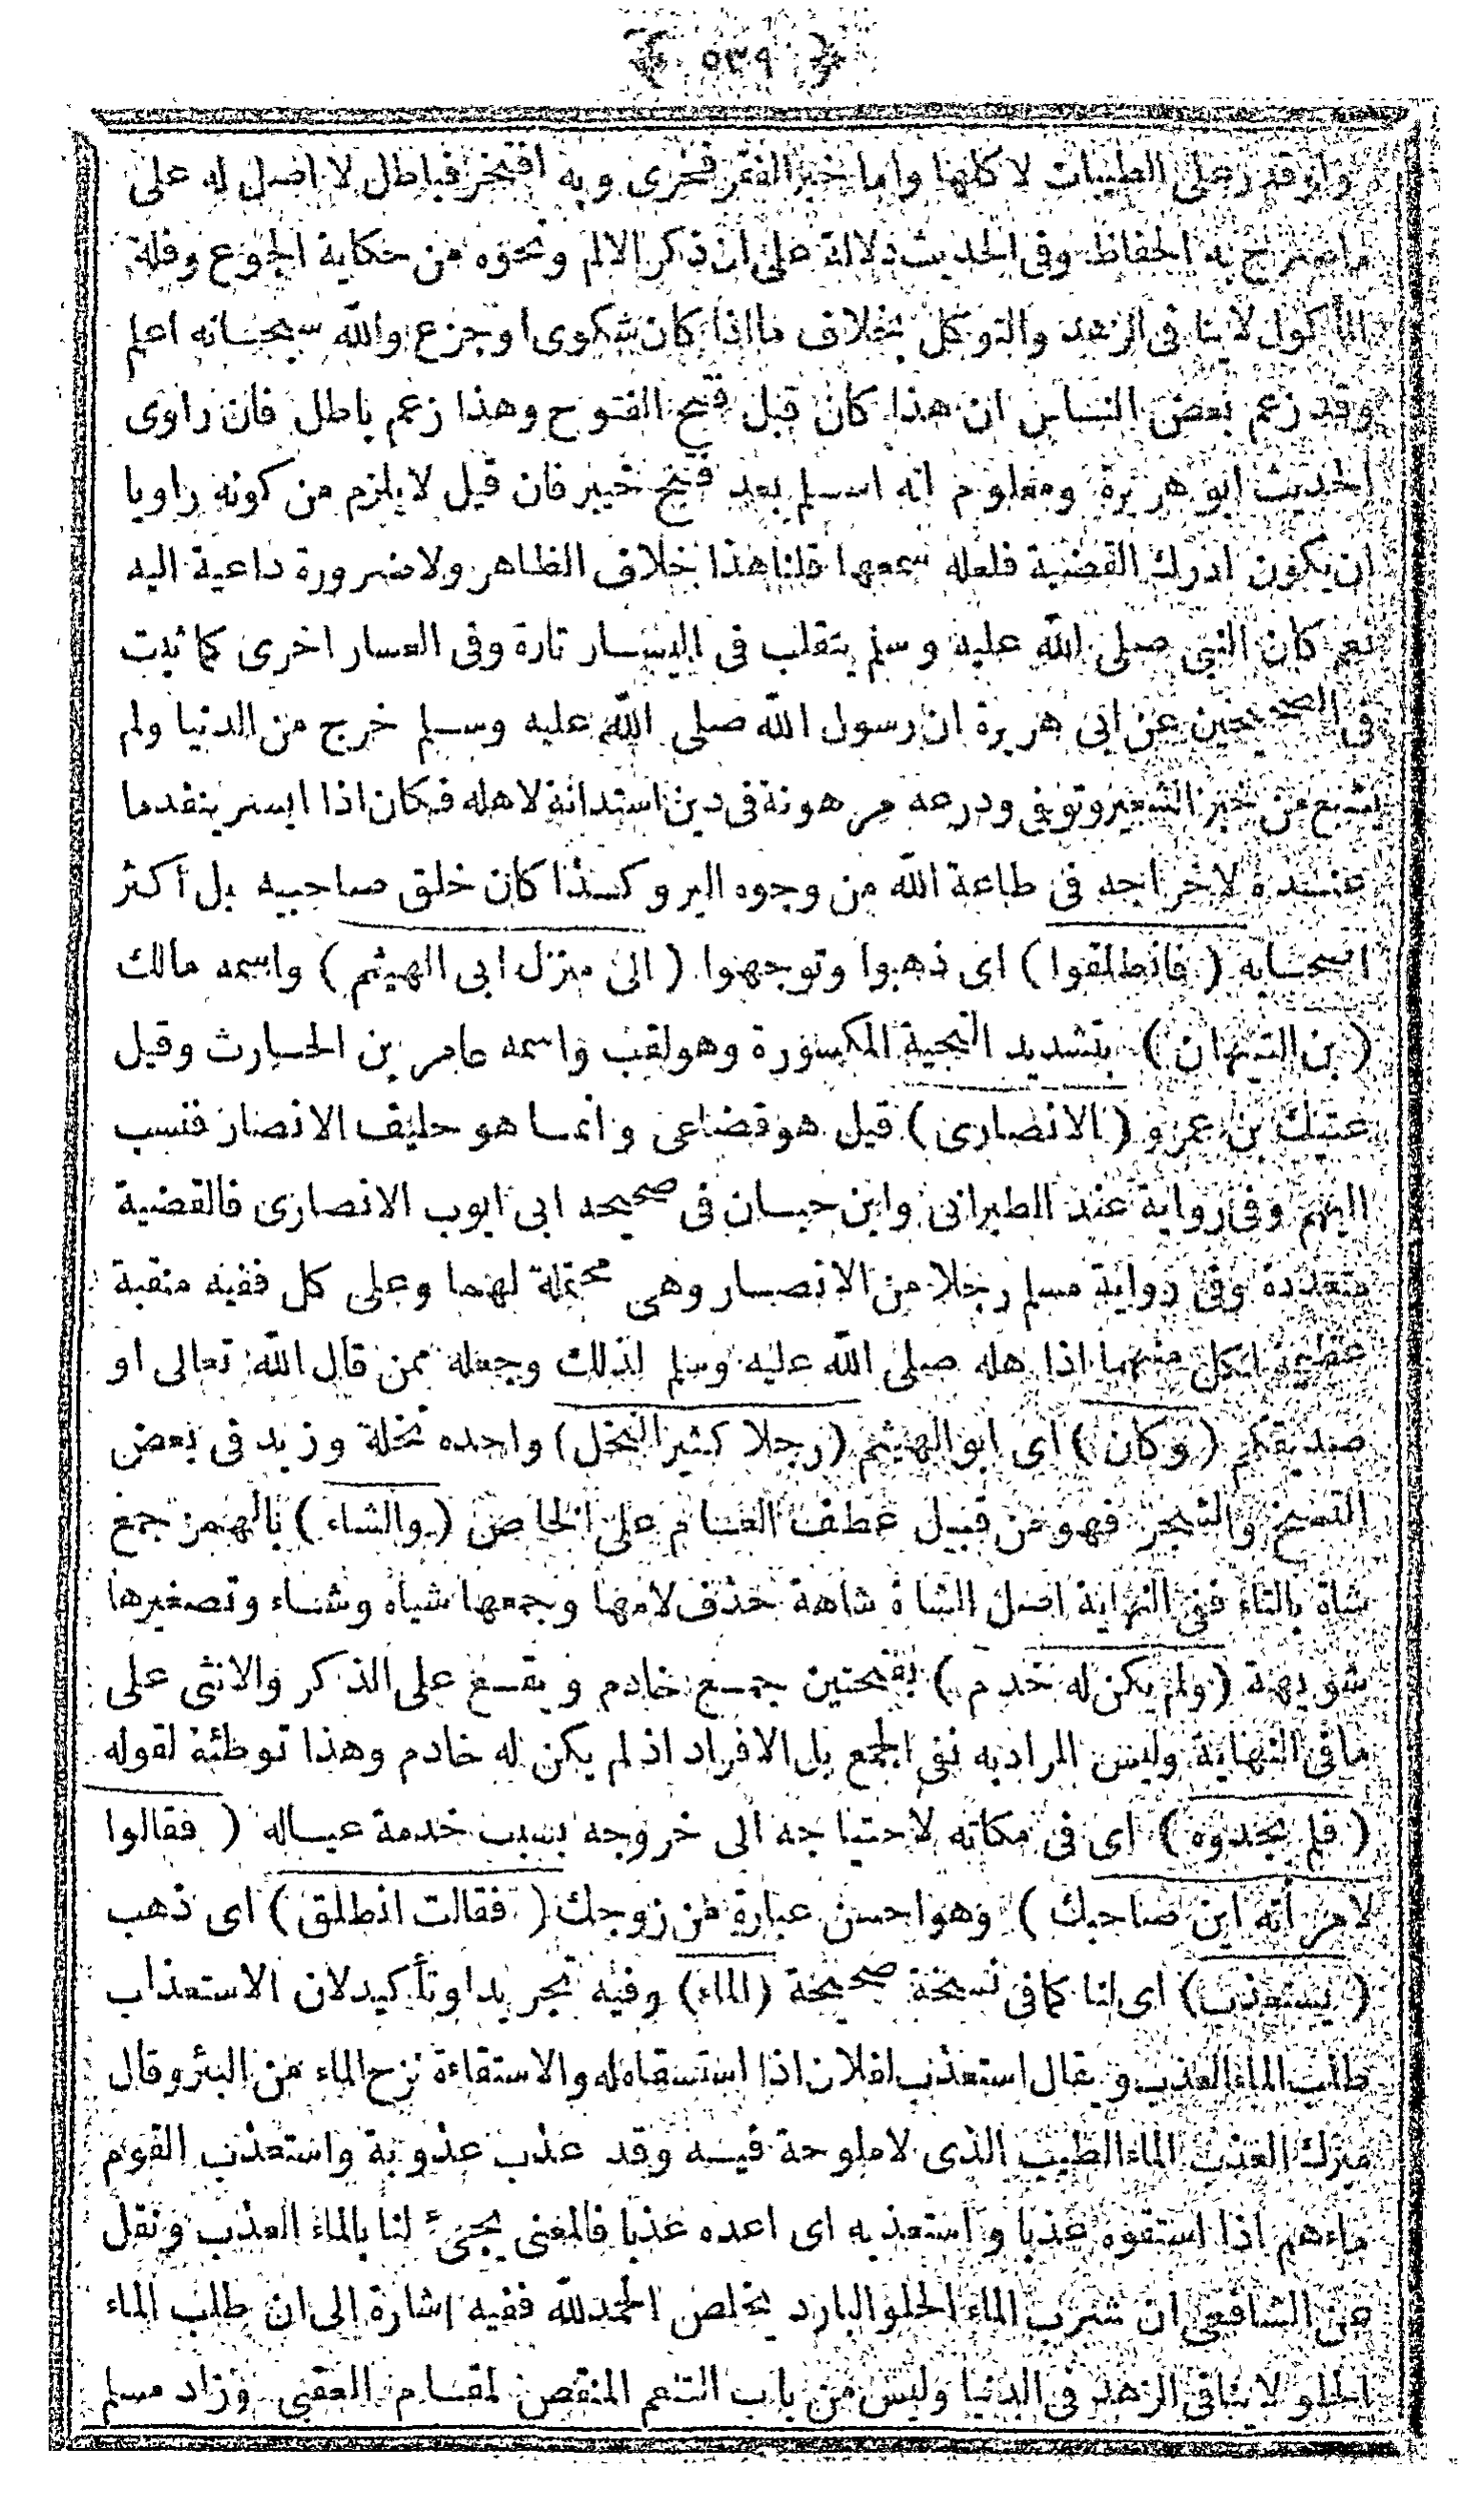 ﴿ ٥٣٩ ﴾
ولو قدر على الطيبات لاكلها واما خبر الفقر فخرى وبه افتخر فباطل لا اصل له على
ما صرح به الحفاظ وفى الحديث دلالة على ان ذكر الالم ونحوه من حكاية الجوع وقلة
المأكول لا ينافى الزهد والتوكل بخلاف ما اذا كان شكوى او جزع والله سبحانه اعلم
وقد زعم بعض الناس ان هذا كان قبل فتح الفتوح وهذا زعم باطل فان راوى
الحديث ابو هريرة ومعلوم انه اسلم بعد فتح خيبر فان قيل لا يلزم من كونه راويا
ان يكون ادرك القضية فلعله سمعها قلنا هذا خلاف الظاهر ولا ضرورة داعية اليه
نعم كان النبى صلى الله عليه وسلم يتقلب فى اليسار تارة وفى العسار اخرى كما ثبت
فى الصحيحين عن ابى هريرة ان رسول الله صلى الله عليه وسلم خرج من الدنيا ولم
يشبع من خبز الشعير وتوفى ودرعه مرهونة فى دين استدانة لاهله فكان اذا ايسر ينفد ما
عنده لاخراجه فى طاعة الله من وجوه البر وكذا كان خلق صاحبيه بل أكثر
اصحابه ( فانطلقوا ) اى ذهبوا وتوجهوا ( الى منزل ابى الهيثم ) واسمه مالك
( بن التيهان ) بتشديد التحية المكسورة وهو لقب واسمه عامر بن الحارث وقيل
عتيك بن عمرو ( الانصارى ) قيل هو قضاعى وانما هو حليف الانصار فنسب
اليهم وفى رواية عند الطبرانى وابن حبان فى صحيحه ابى ايوب الانصارى فالقضية
متعددة وفى رواية مسلم رجلا من الانصار وهى محتملة لهما وعلى كل ففيه منقبة
عظيمة لكل منهما اذ اهله صلى الله عليه وسلم لذلك وجعله ممن قال الله تعالى او
صديقكم ( وكان ) اى ابو الهيثم ( رجلا كثير النخل ) واحده نخلة وزيد فى بعض
النسخ والشجر فهو من قبيل عطف العام على الخاص ( والشاء ) بالهمز جمع
شاة بالتاء ففى النهاية اصل الشاة شاهة حذف لامها وجمعها شياه وشاء وتصغيرها
شويهة ( ولم يكن له خدم ) بفتحتين جمع خادم ويقع على الذكر والانثى على
ما فى النهاية وليس المراد به نفى الجمع بل الافراد اذ لم يكن له خادم وهذا توطئة لقوله
( فلم يجدوه ) اى فى مكانه لاحتياجه الى خروجه بسبب خدمة عياله ( فقالوا
لامرأته اين صاحبك ) وهو احسن عبارة من زوجك ( فقالت انطلق ) اى ذهب
( يستعذب ) اى لنا كما فى نسخة صحيحة ( الماء ) وفيه تجريد او تأكيد لان الاستعذاب
طلب الماء العذب ويقال استعذب لفلان اذا استسقاه له والاستقاءة نزح الماء من البئر وقال
ميرك العذب الماء الطيب الذى لا ملوحة فيه وقد عذب عذوبة واستعذب القوم
ماءهم اذا استقوه عذبا واستعذبه اى اعده عذبا فالمعنى يجئ لنا بالماء العذب ونقل
عن الشافعى ان شرب الماء الحلو البارد يخلص الحمد لله ففيه اشارة الى ان طلب الماء
الحلو لا ينافى الزهد فى الدنيا وليس من باب التنعم المنقص لمقام العقبى وزاد مسلم